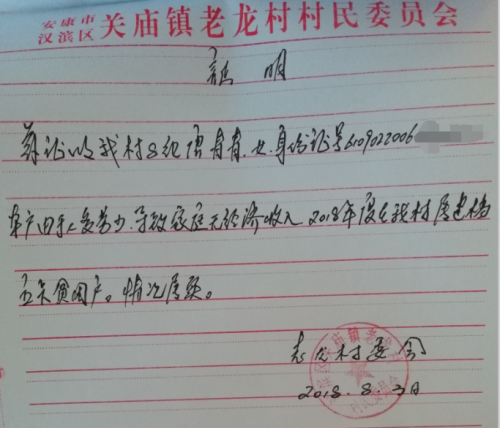 安康市
汉滨区 关庙镇老龙村村民委员会
证明
兹证明我村8组唐青青,女,身份证号6109022006
本户由于人多劳少,导致家庭无经济收入2018年度在我村属建档
立卡贫困户。情况属实。
老龙村委会
2018.8.3日